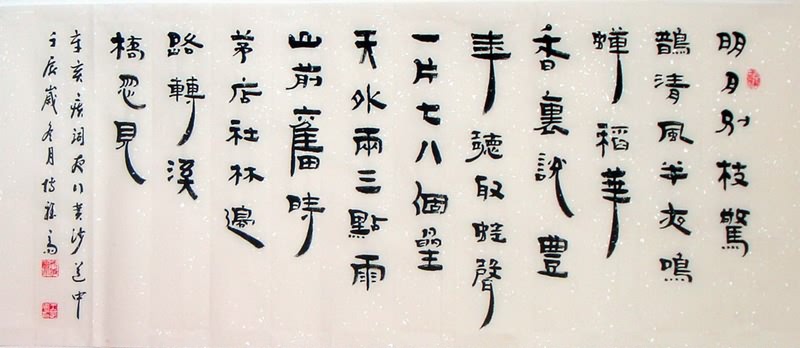 明月別枝驚
鵲清風半夜鳴
蟬稻華
香裏說豐
年聽取蛙聲
一片七八個星
天外兩三點雨
山前舊時
茅店社林邊
路轉溪
橋忽見
辛棄疾詞夜行黃沙道中
壬辰歲冬月